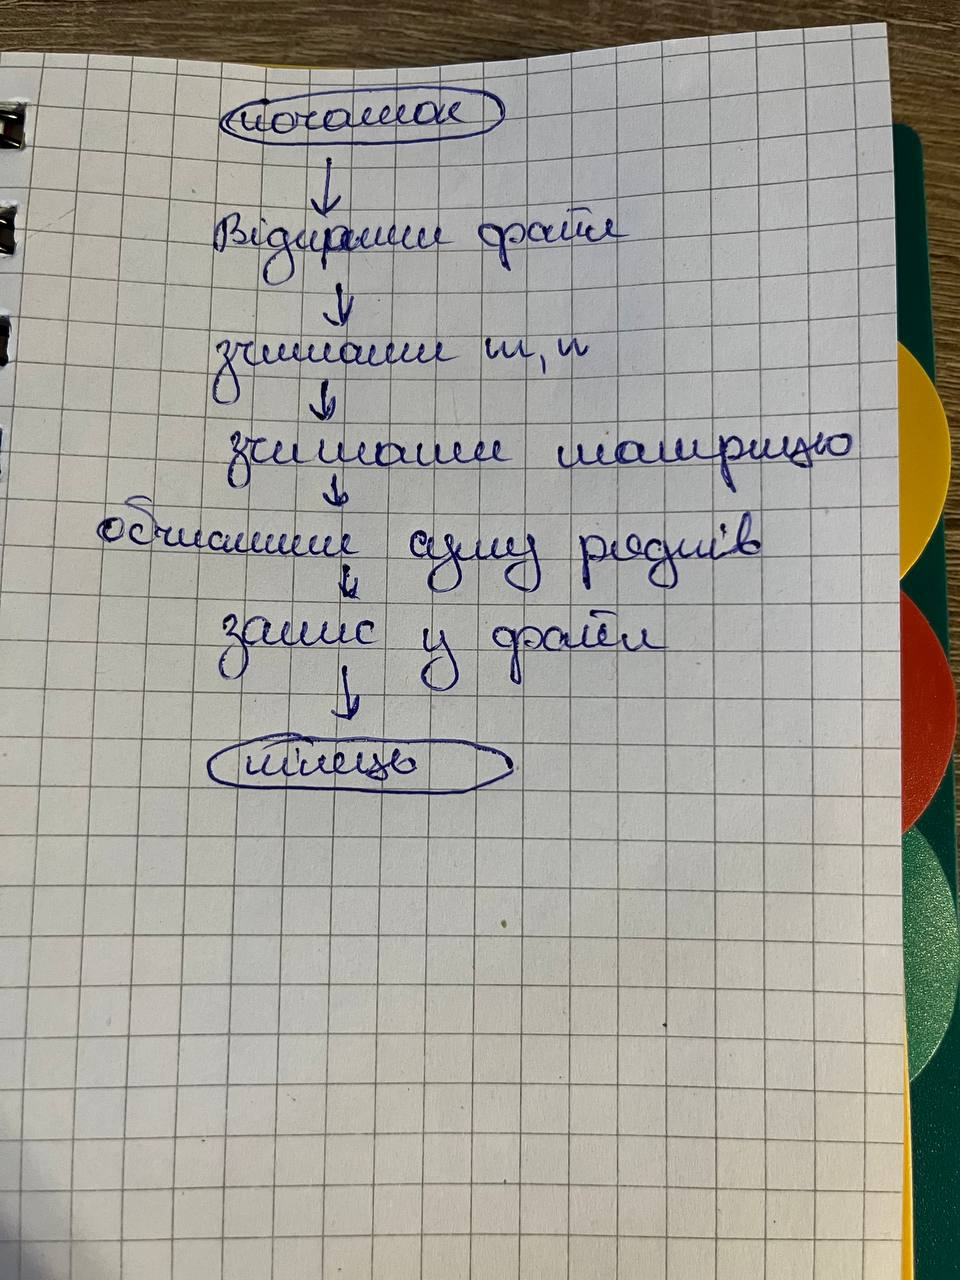 початок
Відкрити файл
зчитати m, n
зчитати матрицю
обчислити суму рядків
запис у файл
кінець